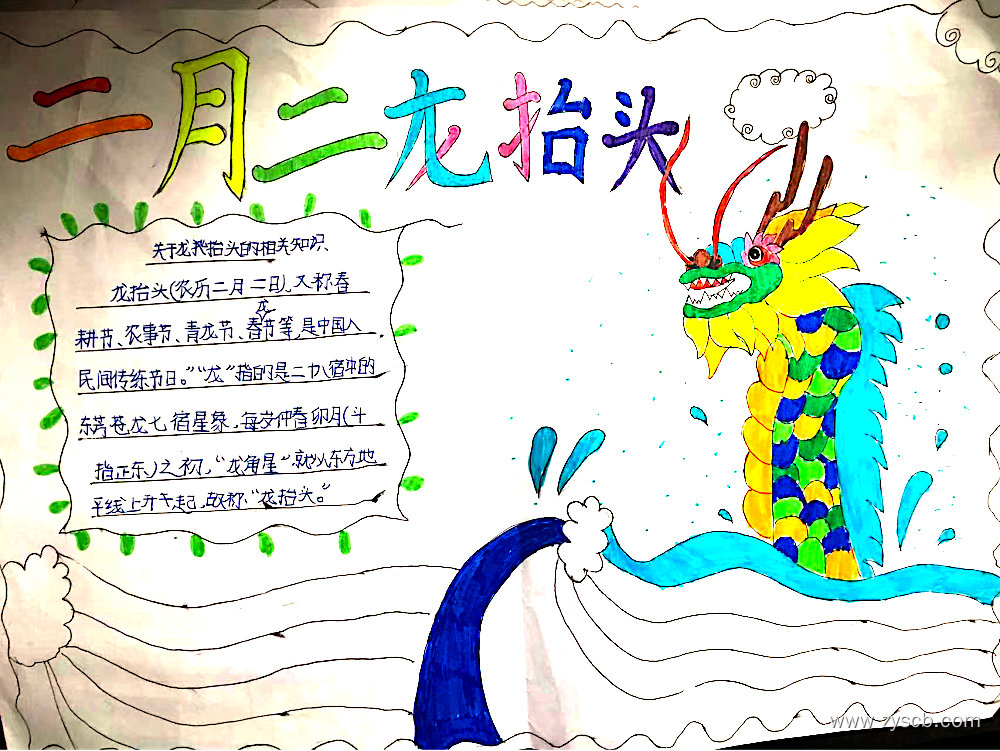 二月二龙抬头
关于龙抬头的相关知识
龙抬头(农历二月二日),又称春
耕节、农事节、青龙节、春龙节等,是中国人
民间传统节日。"龙"指的是二十八宿中的
东方苍龙七宿星象,每岁仲春卯月(斗
指正东)之初,"龙角星"就从东方地
平线上升起,故称"龙抬头。"
www.zyscb.com